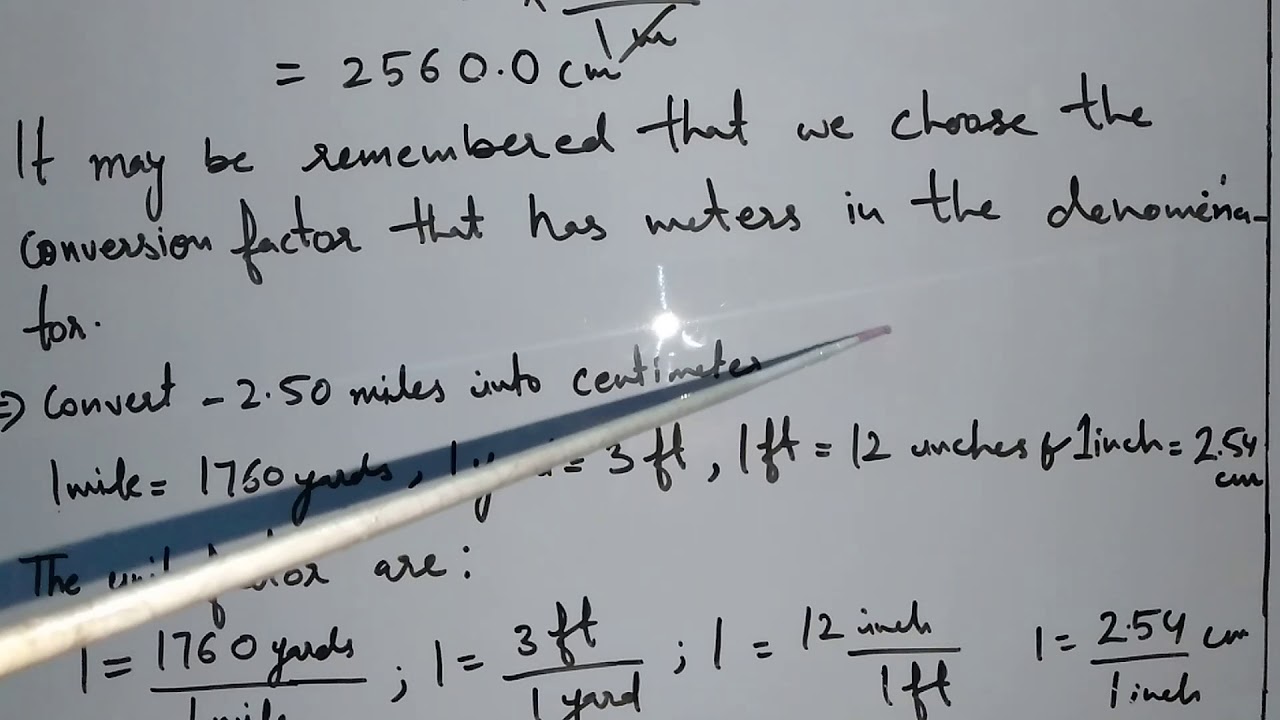 1 m
= 2560.0 cm
It may be remembered that we choose the
conversion factor that has meters in the denomina-
tor.
⇒ Convert - 2.50 miles into centimeter
1 mile = 1760 yards, 1 = 3 ft, 1 ft = 12 inches & 1 inch = 2.54
cm
The are:
1 = 1760 yards ; 1 = 3 ft ; 1 = 12 inch 1 = 2.54 cm
1 mile 1 yard 1 ft 1 inch